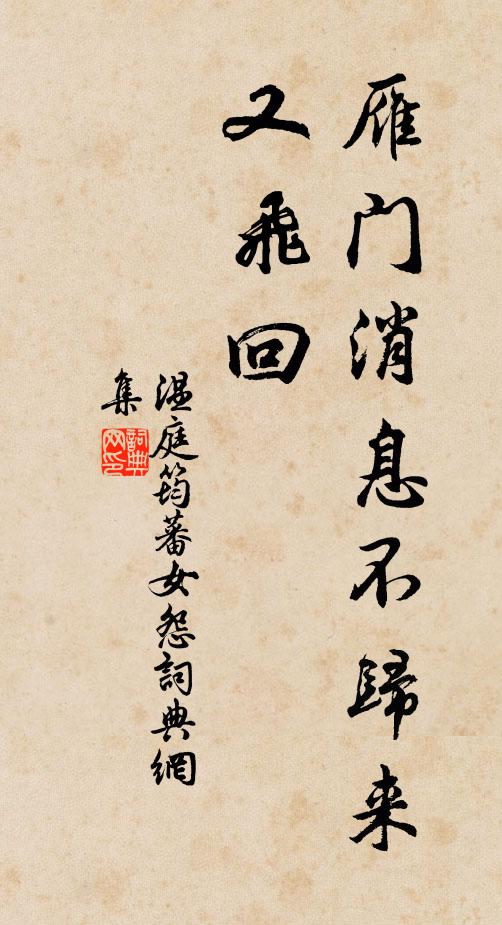 雁门消息不歸来
又飛回
温庭筠蕃女怨詞典網
集
詞典
网印